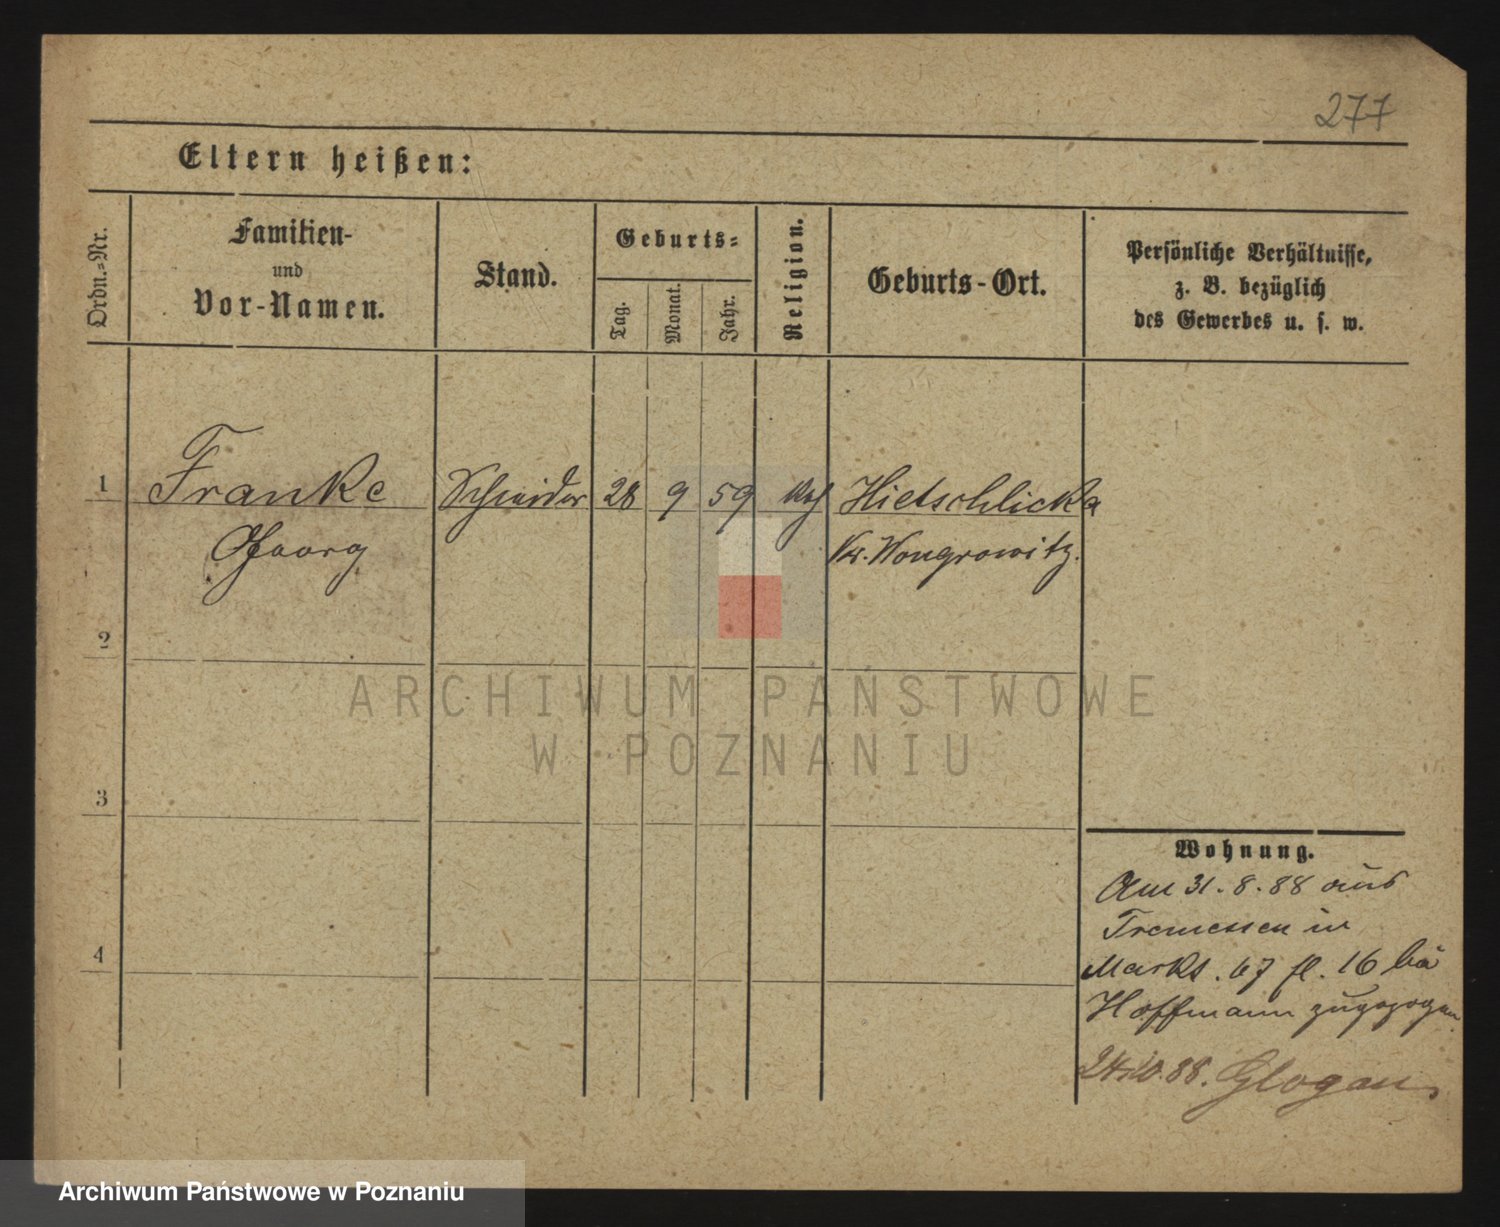 277
Eltern heißen:
Ordn.-Nr.
Familien-
und
Vor-Namen.
Stand.
Geburts-
Tag.
Monat.
Jahr.
Religion.
Geburts-Ort.
Persönliche Verhältnisse,
z. B. bezüglich
des Gewerbes u. s. w.
1 Franke Schneider 28 9 59 Hietschlicka
Georg Kr. Wongrowitz.
2
3
4
Wohnung.
Am 31.8.88 aus
Tremessen in
Markt. 67 fl. 16 bei
Hoffmann zugezogen.
24.10.88. Glogau
ARCHIWUM PAŃSTWOWE
W POZNANIU
Archiwum Państwowe w Poznaniu